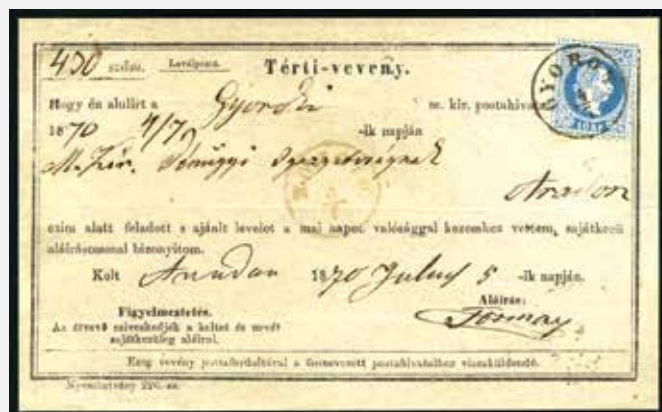 430 szám. Levélposta. Térti-vevény.
Hogy én alulirt a Gyoroki m. kir. postahivatal
1870 4/7 -ik napján
M. kir. Pénzügyi Igazgatóságnak
Aradon
czim alatt feladott s ajánlt levelet a mai napon valósággal kezemhez vettem, sajátkezű
aláirásommal bizonyitom.
Kolt Aradon 1870 Julius 5 -ik napján.
Figyelmeztetés. Aláirás:
Az átvevő sziveskedjék a keltet és nevét
sajátkezüleg aláirni.
Tormay
Ezen vevény postafordultával a fennevezett postahivatalhoz visszaküldendő.
Nyomtatvány 226. sz.
GYOROK